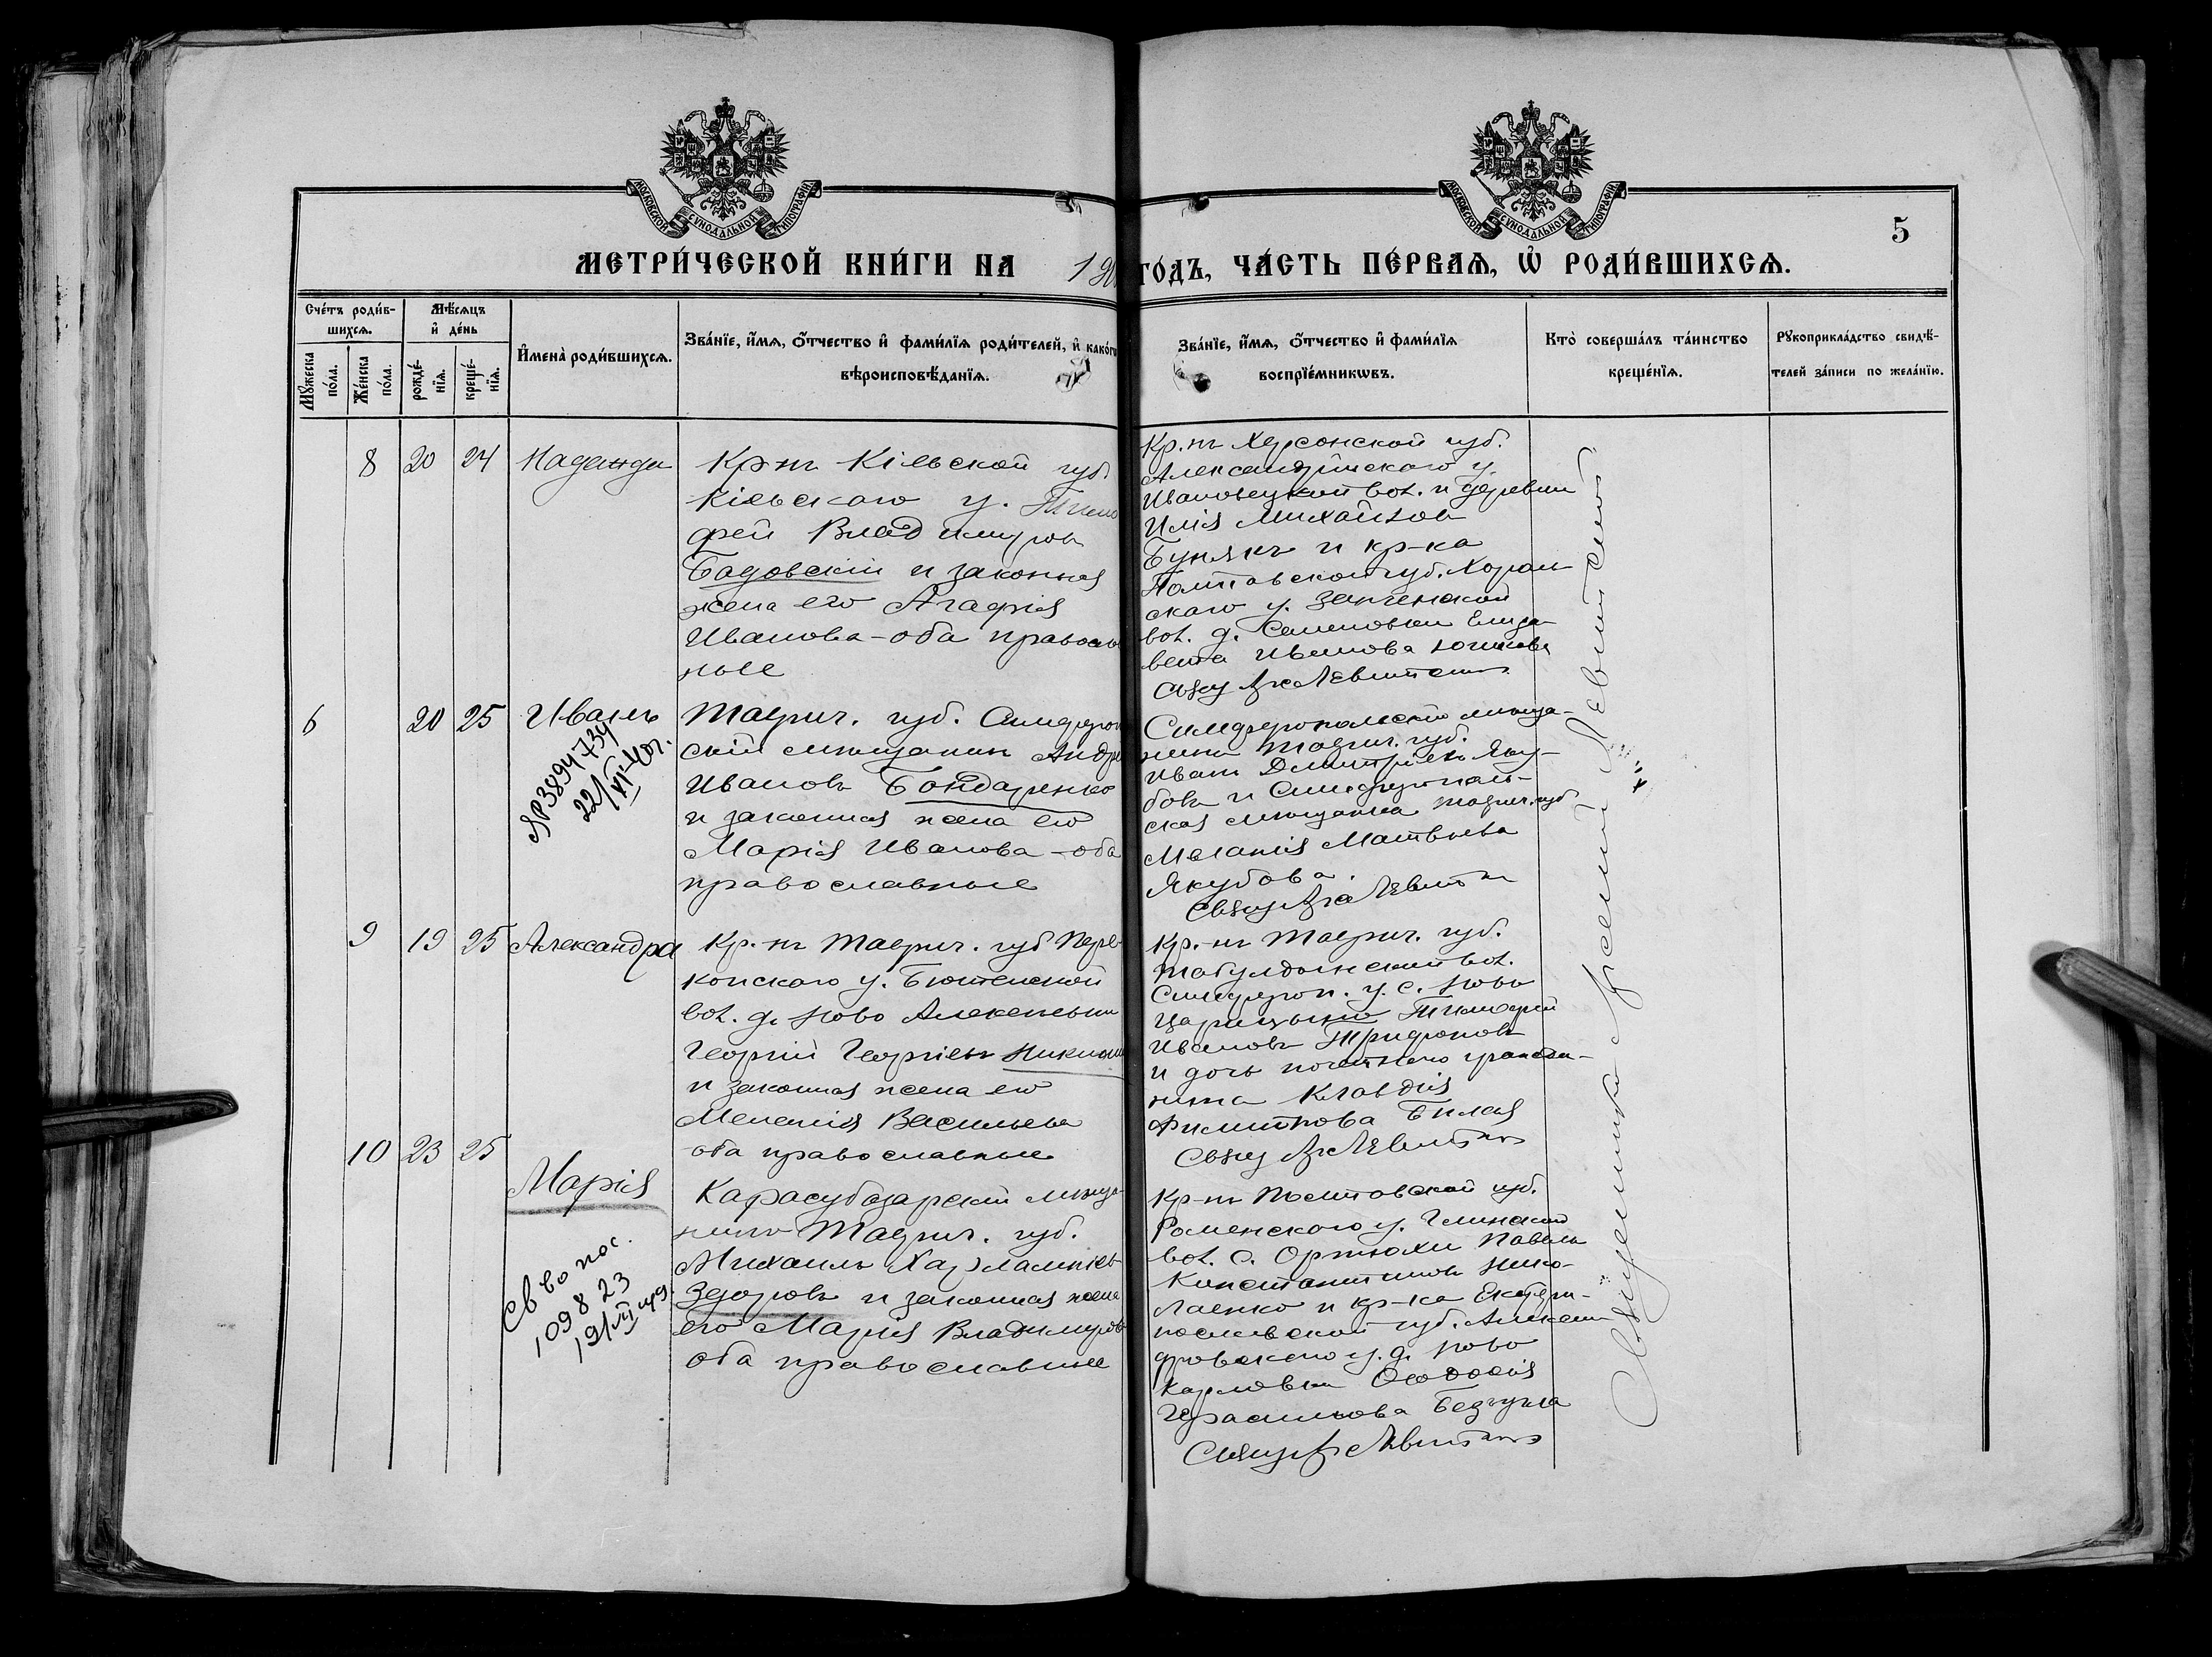 МОСКОВСКОЙ СѴНОДАЛЬНОЙ ТИПОГРАФІИ
МОСКОВСКОЙ СѴНОДАЛЬНОЙ ТИПОГРАФІИ
5
МЕТРИ́ЧЕСКОЙ КНИ́ГИ НА
ГО́ДЪ, ЧА́СТЬ ПЕ́РВАѦ, Ѡ҆ РОДИ́ВШИХСѦ.
Сче́тъ роди́в-
шихсѧ.
Мꙋжеска по́ла.
Же́нска по́ла.
Мѣ́сѧцъ
и҆ де́нь
рожде́-
нїѧ.
креще́-
нїѧ.
И҆мена̀ роди́вшихсѧ.
Зва́нїе, и҆́мѧ, ѻ҆́тчество и҆ фами́лїѧ роди́телей, и҆ како́гѡ
вѣроисповѣ́данїѧ.
Зва́нїе, и҆́мѧ, ѻ҆́тчество и҆ фами́лїѧ
воспрїе́мникѡвъ.
Кто̀ соверша́лъ та́инство
креще́нїѧ.
Рꙋкоприкла́дство свидѣ́-
телей за́писи по жела́нїю.
8 20 24 Надежда
Кр-нъ Кіевской губ.
Кіевскаго у. Тимо
фей Владиміровъ
Бадовскій и законная
жена его Агафія
Иванова - оба православ
ные
Кр.нъ Херсонской губ.
Александрійскаго у.
вол. и деревни
Илія Михайловъ
Бунякъ и кр-ка
Полтавской губ. Хороль-
скаго у.
вол. д. Семеновки Елиза-
вета Иванова
Свящ Арс Левитскій
6 20 25 Иванъ
№ 3894734
22/VI-40г.
Таврич. губ. Симфероп
скій мѣщанинъ Андрей
Ивановъ Бондаренко
и законная жена его
Марія Иванова - оба
православные
Симферопольскій мѣща-
нинъ Таврич. губ.
Иванъ Димитріевъ Яку-
бовъ и Симферополь-
ская мѣщанка Таврич. губ
Меланія Матвѣева
Якубова.
Свящ Арс Левитскій
9 19 25 Александра
Кр.-нъ Таврич. губ Пере-
копскаго у. Бютенской
вол. д. Ново Алексѣевки
Георгій Георгіевъ
и законная жена его
Меланія Васильева
оба православные
Кр.-нъ Таврич. губ.
Табулдынской вол.
Симфероп. у. с. Ново
Царицыно Тимофей
Ивановъ Трифоновъ
и дочь почетнаго гражда-
нина Клавдія
Филиппова Бѣлая
Свящ Арс Левитскій
10 23 25
Марія
Св во пос.
109823
19/VII
Карасубазарскій мѣща-
нинъ Таврич. губ.
Михаилъ Харлампіевъ
Здоровъ и законная жена
его Марія Владимірова
оба православные
Кр-нъ Полтавской губ.
Роменскаго у. Глинской
вол. с. Артюхи Павелъ
Константиновъ Нико-
лаенко и кр-ка Екатери-
нославской губ. Алексан
дровскаго у. д. Ново
Карловки Ѳеодосія
Герасимова
Свящ Арс Левитскій
Священникъ Арсеній Левитскій